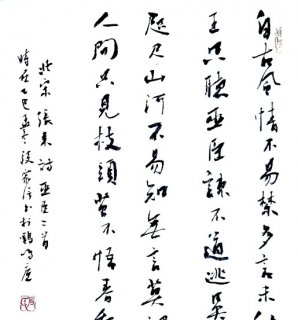 自古今情不易禁多言未
王只聽巫臣諫不道逃吳
咫尺山河不易知無言莫
人間只見枝頭不悟春
北宋張耒詩巫臣二首
時在乙巳孟冬於鶴鳴廬